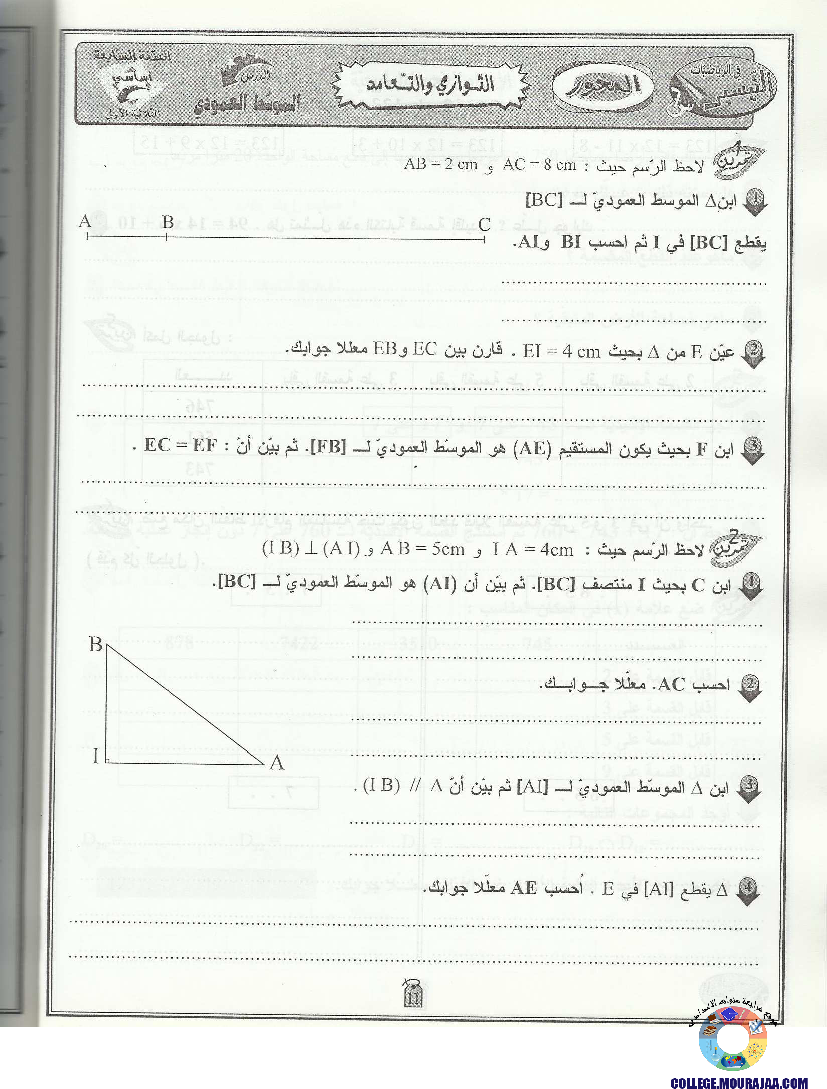 السنة السابعة
أساسي
الثلاثي الأول
الدرس
الموسّط العمودي
التوازي والتعامد
المحور
في الرياضيات
تمرين 1 لاحظ الرّسم حيث : AC = 8 cm و AB = 2 cm
1 ابن Δ الموسّط العموديّ لـ [BC]
يقطع [BC] في I ثم احسب BI و AI.
A B C
2 عيّن E من Δ بحيث EI = 4 cm . قارن بين EC و EB معللا جوابك.
3 ابن F بحيث يكون المستقيم (AE) هو الموسّط العموديّ لـ [FB]. ثم بيّن أنّ : EC = EF .
تمرين 2 لاحظ الرّسم حيث : I A = 4cm و A B = 5cm و (I B) ⊥ (A I)
1 ابن C بحيث I منتصف [BC]. ثم بيّن أن (AI) هو الموسّط العموديّ لـ [BC].
B
2 احسب AC. معلّلا جوابك.
I A
3 ابن Δ الموسّط العموديّ لـ [AI] ثم بيّن أنّ A // (I B) .
4 Δ يقطع [AI] في E . أحسب AE معلّلا جوابك.
11
COLLEGE.MOURAJAA.COM